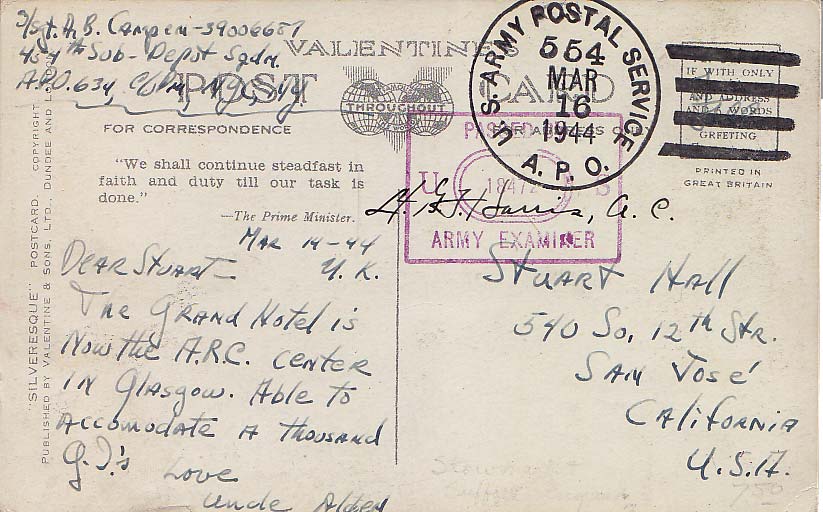 S/Sgt. A. B. Campen - 39006687
4th Sub-Depot Sqdn.
A.P.O. 634, % Pm, NYC, NY
VALENTINE'S
POST CARD
THROUGHOUT
FOR CORRESPONDENCE
"We shall continue steadfast in
faith and duty till our task is
done."
—The Prime Minister.
Mar 14-44
U.K.
Dear Stuart—
The Grand Hotel is
now the A.R.C. center
in Glasgow. Able to
accomodate a thousand
G.I.'s
Love
Uncle Alden
"SILVERESQUE" POSTCARD. COPYRIGHT
PUBLISHED BY VALENTINE & SONS, LTD., DUNDEE AND
U.S. ARMY POSTAL SERVICE
554
MAR
16
1944
A.P.O.
IF WITH ONLY
AND ADDRESS
WORDS
GREETING
PRINTED IN
GREAT BRITAIN
ADDRESS
PASSED
U S
18472
ARMY EXAMINER
Harris, A.C.
Stuart Hall
540 So. 12th Str.
San José
California
U.S.A.
750